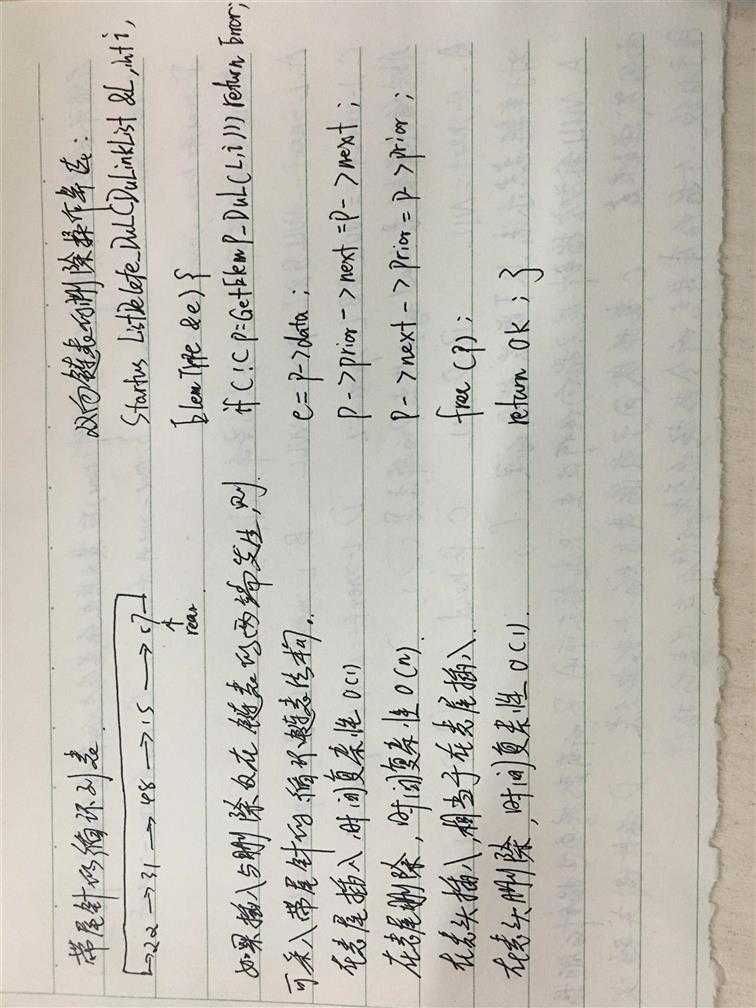 带尾针的循环列表
22→31→48→15→57
rear
如果插入与删除仅在链表的两端发生,则
可采入带尾针的循环链表结构。
在表尾插入,时间复杂性O(1)
在表尾删除,时间复杂性O(n).
在表头插入,相当于在表尾插入
在表头删除,时间复杂性O(1).
双向链表的删除操作算法:
Startus ListDelete_DuL(DuLinkList &L,int i,
ElemType &e){
if(!(p=GetElemP_DuL(L,i)))return Error;
e=p->data;
p->prior->next=p->next;
p->next->prior=p->prior;
free(p);
return OK;}